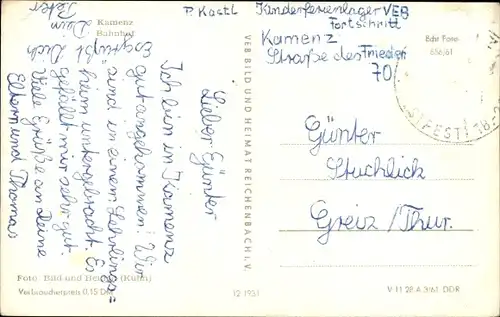 Kamenz
Bahnhof
P. Kastl
Kinderferienlager VEB
Fortschritt
Kamenz
Straße des Frieden
70
Echt Foto
656/61
Lieber Günter
Ich bin in Kamenz
gut angekommen! Wir
sind in einem Lehrlings=
heim untergebracht. Es
gefällt mir sehr gut.
Viele Grüße an Deine
Eltern und Thomas
Es grüßt Dich
Dein
Peter
VEB BILD UND HEIMAT REICHENBACH i. V.
Günter
Stuchlick
Greiz/Thur.
Foto: Bild und Heimat (Kuhn)
Verbraucherpreis 0,15 DM
12 1931
V 11 28 A 3/61 DDR